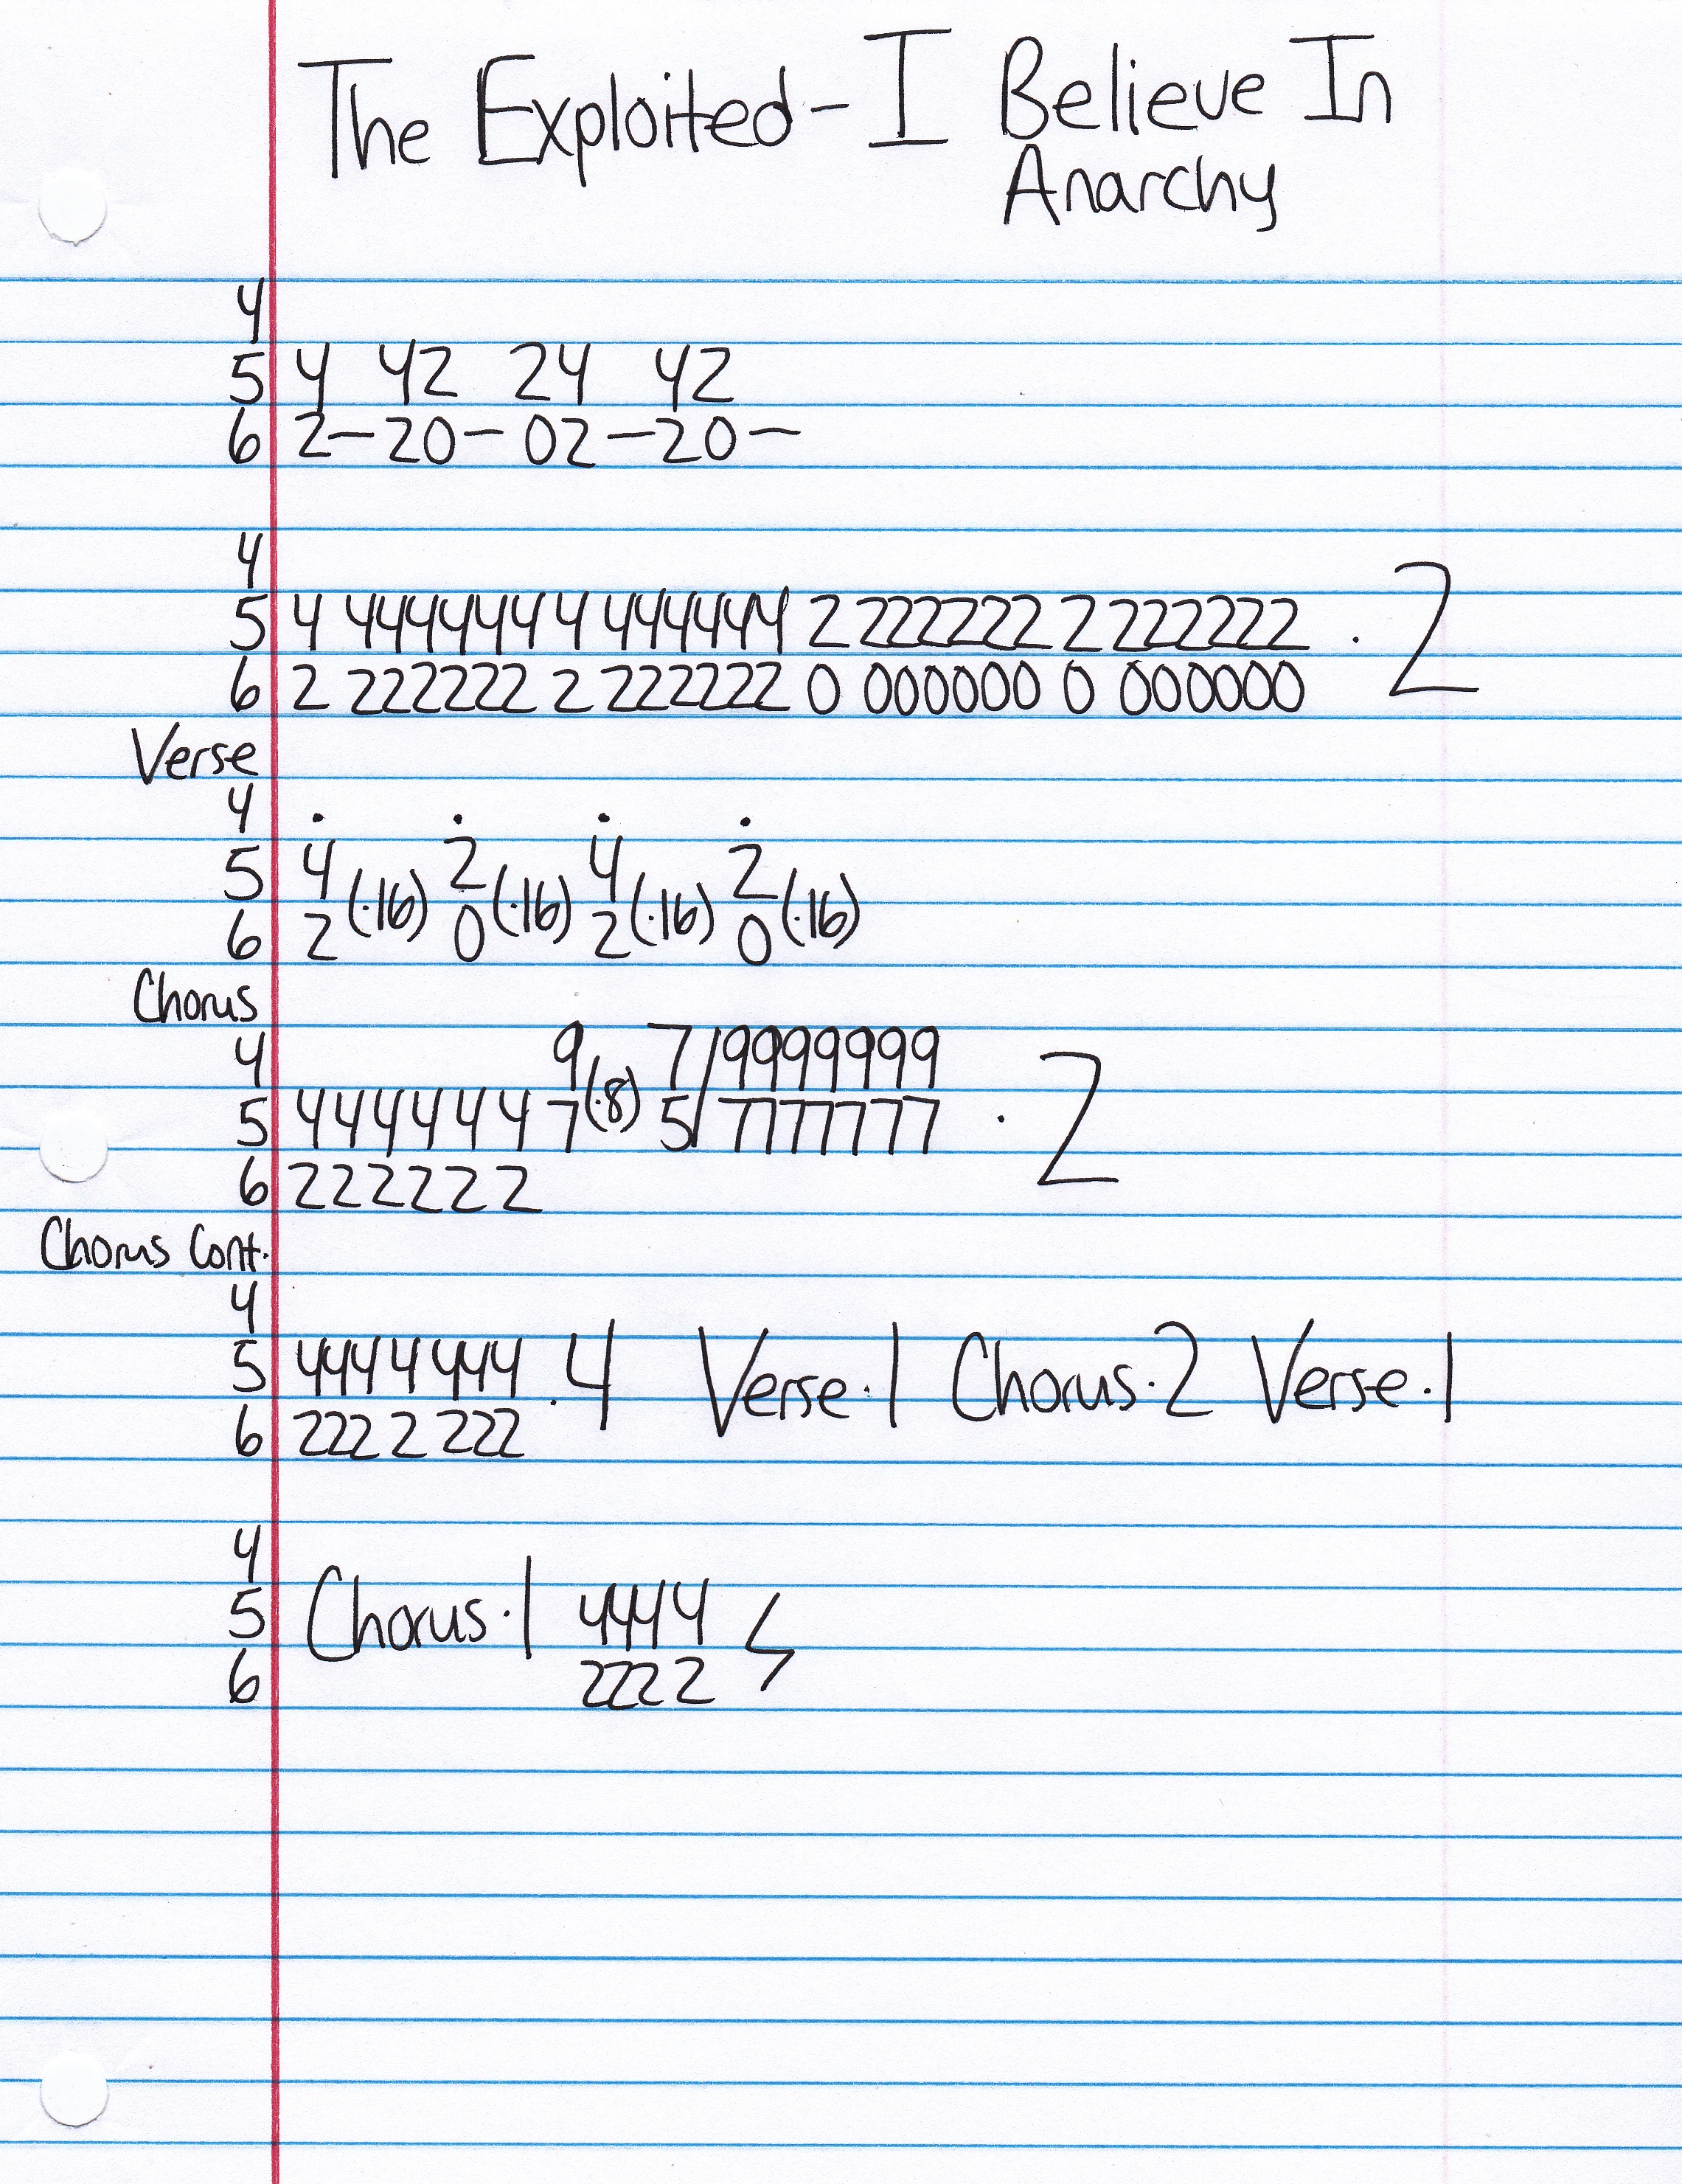 The Exploited - I Believe In
Anarchy
4
5 4 42 24 42
6 2-20-02-20-
4
5 4 444444 4 444444 2 222222 2 222222 · 2
6 2 222222 2 222222 0 000000 0 000000
Verse
4 · · · ·
5 4 2 4 2
(·16) (·16) (·16) (·16)
6 2 0 2 0
Chorus
4 9 (·8) 7/9999999
5 444444 7 5/7777777 · 2
6 222222
Chorus Cont.
4
5 4444 444 · 4 Verse·1 Chorus·2 Verse·1
6 2222 222
4
5 Chorus·1 4444
6 2222